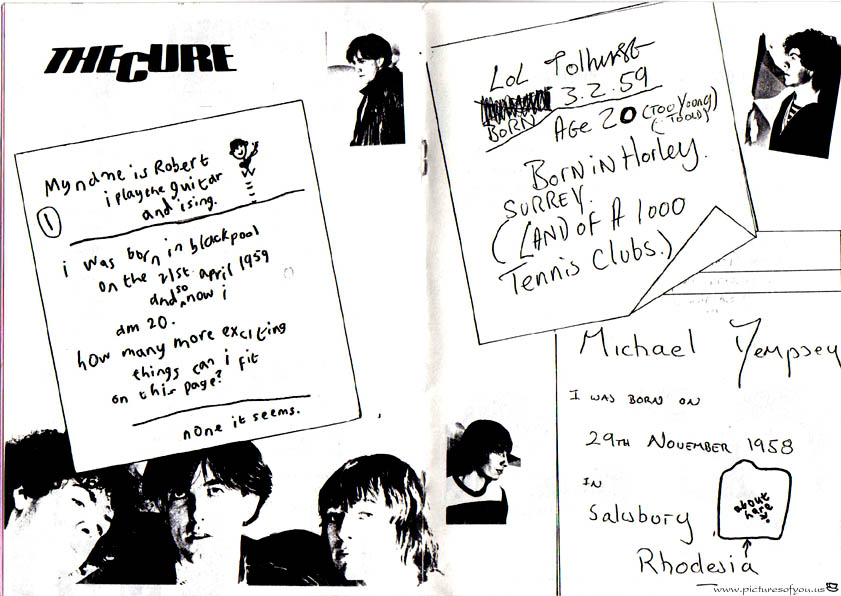 THE CURE
My name is Robert
i play the guitar
and i sing.
1
i was born in blackpool
on the 21st april 1959
and so now i
am 20.
how many more exciting
things can i fit
on this page?
none it seems.
LOL Tolhurst
BORN 3.2.59
AGE 20 (TOO YOUNG)
(TOO OLD)
BORN IN HORLEY.
SURREY.
(LAND OF A 1000
TENNIS CLUBS.)
Michael Dempsey
I WAS BORN ON
29TH NOVEMBER 1958
IN
Salisbury
about
here
Rhodesia
www.picturesofyou.us